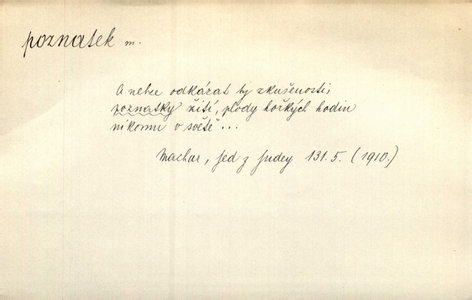 poznatek m.
A nelze odkázat ty zkušenosti,
poznatky žití, plody hořkých hodin
nikomu v světě ...
Machar, Jed z Judey 131.5. (1910.)